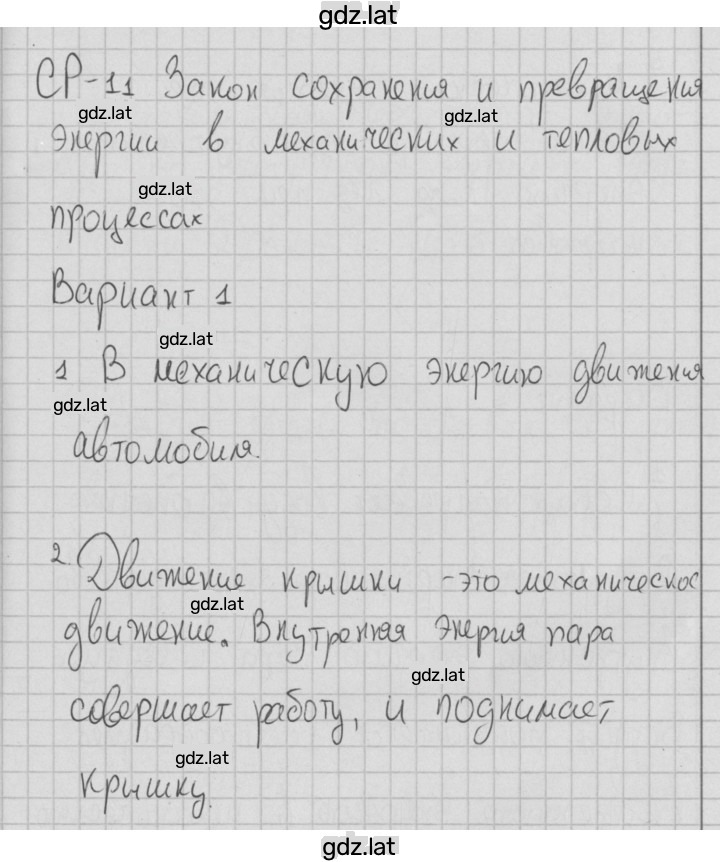 gdz.lat
СР-11 Закон сохранения и превращения
gdz.lat gdz.lat
энергии в механических и тепловых
gdz.lat
процессах
Вариант 1
gdz.lat
1 В механическую энергию движения
gdz.lat
автомобиля.
2. Движение крышки - это механическое
gdz.lat
движение. Внутренняя энергия пара
gdz.lat
совершает работу, и поднимает
gdz.lat
крышку.
gdz.lat